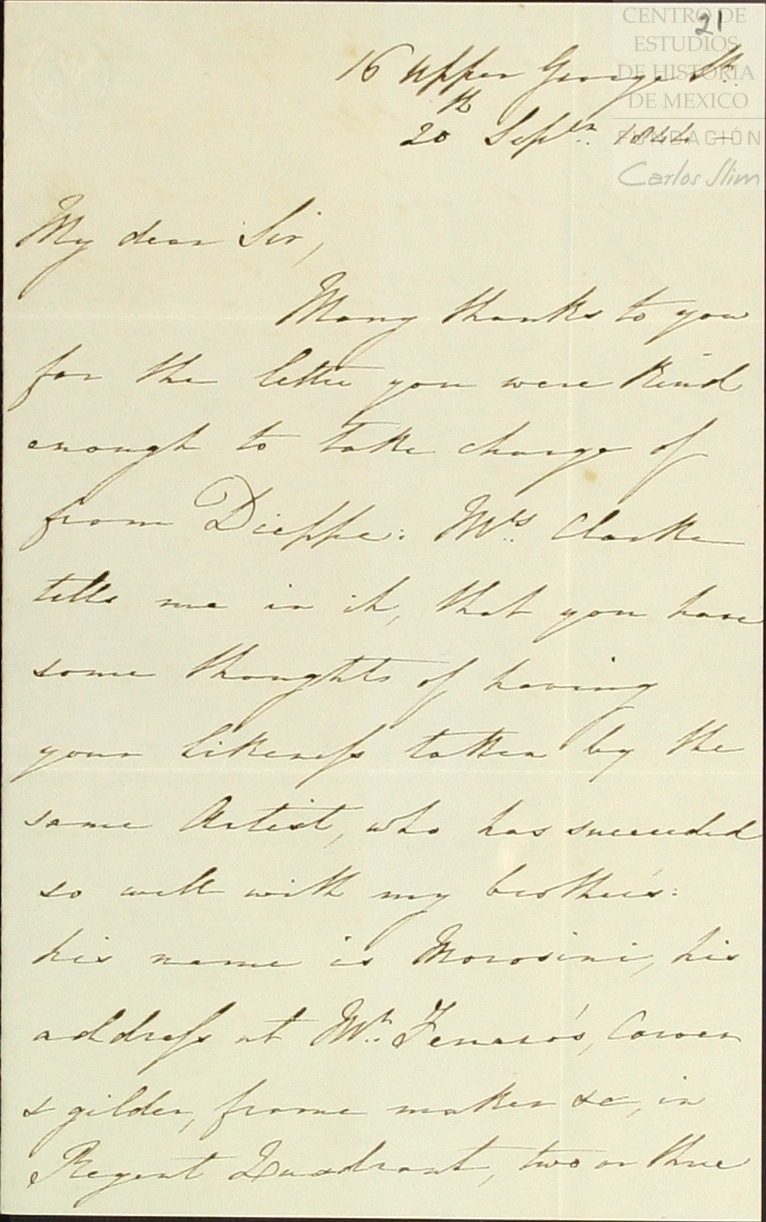 21
CENTRO DE
ESTUDIOS
DE HISTORIA
DE MEXICO
FUNDACIÓN
Carlos Slim
16 Upper George St.
20th Septr. 1844 —
My dear Sir,
Many thanks to you
for the letter you were kind
enough to take charge of
from Dieppe: Mrs. Clarke
tells me in it, that you have
some thoughts of having
your Likeness taken by the
same Artist, who has succeeded
so well with my brother's:
his name is Morosini, his
address at Mr. Ferraro's, Carver
& gilder, frame maker &c, in
Regent Quadrant, two or three